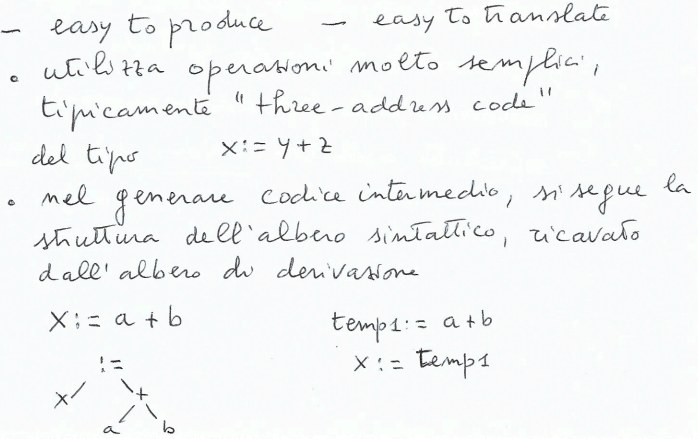 – easy to produce – easy to translate
• utilizza operazioni molto semplici,
tipicamente "three-address code"
del tipo x:= y+z
• nel generare codice intermedio, si segue la
struttura dell'albero sintattico, ricavato
dall'albero di derivazione
X:= a+b temp1:= a+b
:= x:= temp1
x +
a b